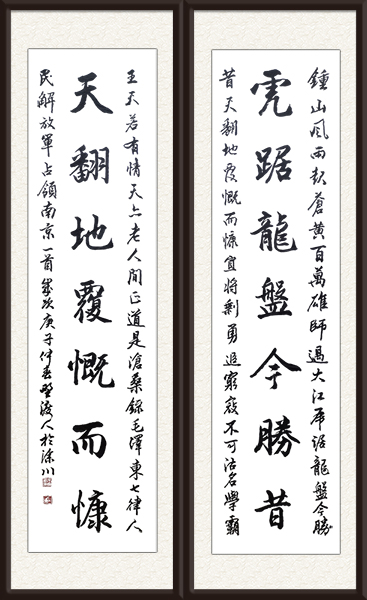 鍾山风雨起蒼黄百萬雄師過大江虎踞龍盤今勝
虎踞龍盤今勝昔
昔天翻地覆慨而慷宜將剩勇追窮寇不可沽名學霸
王天若有情天亦老人间正道是滄桑錄毛澤東七律人
天翻地覆慨而慷
民解放軍占領南京一首歲次庚子仲春渡人於川